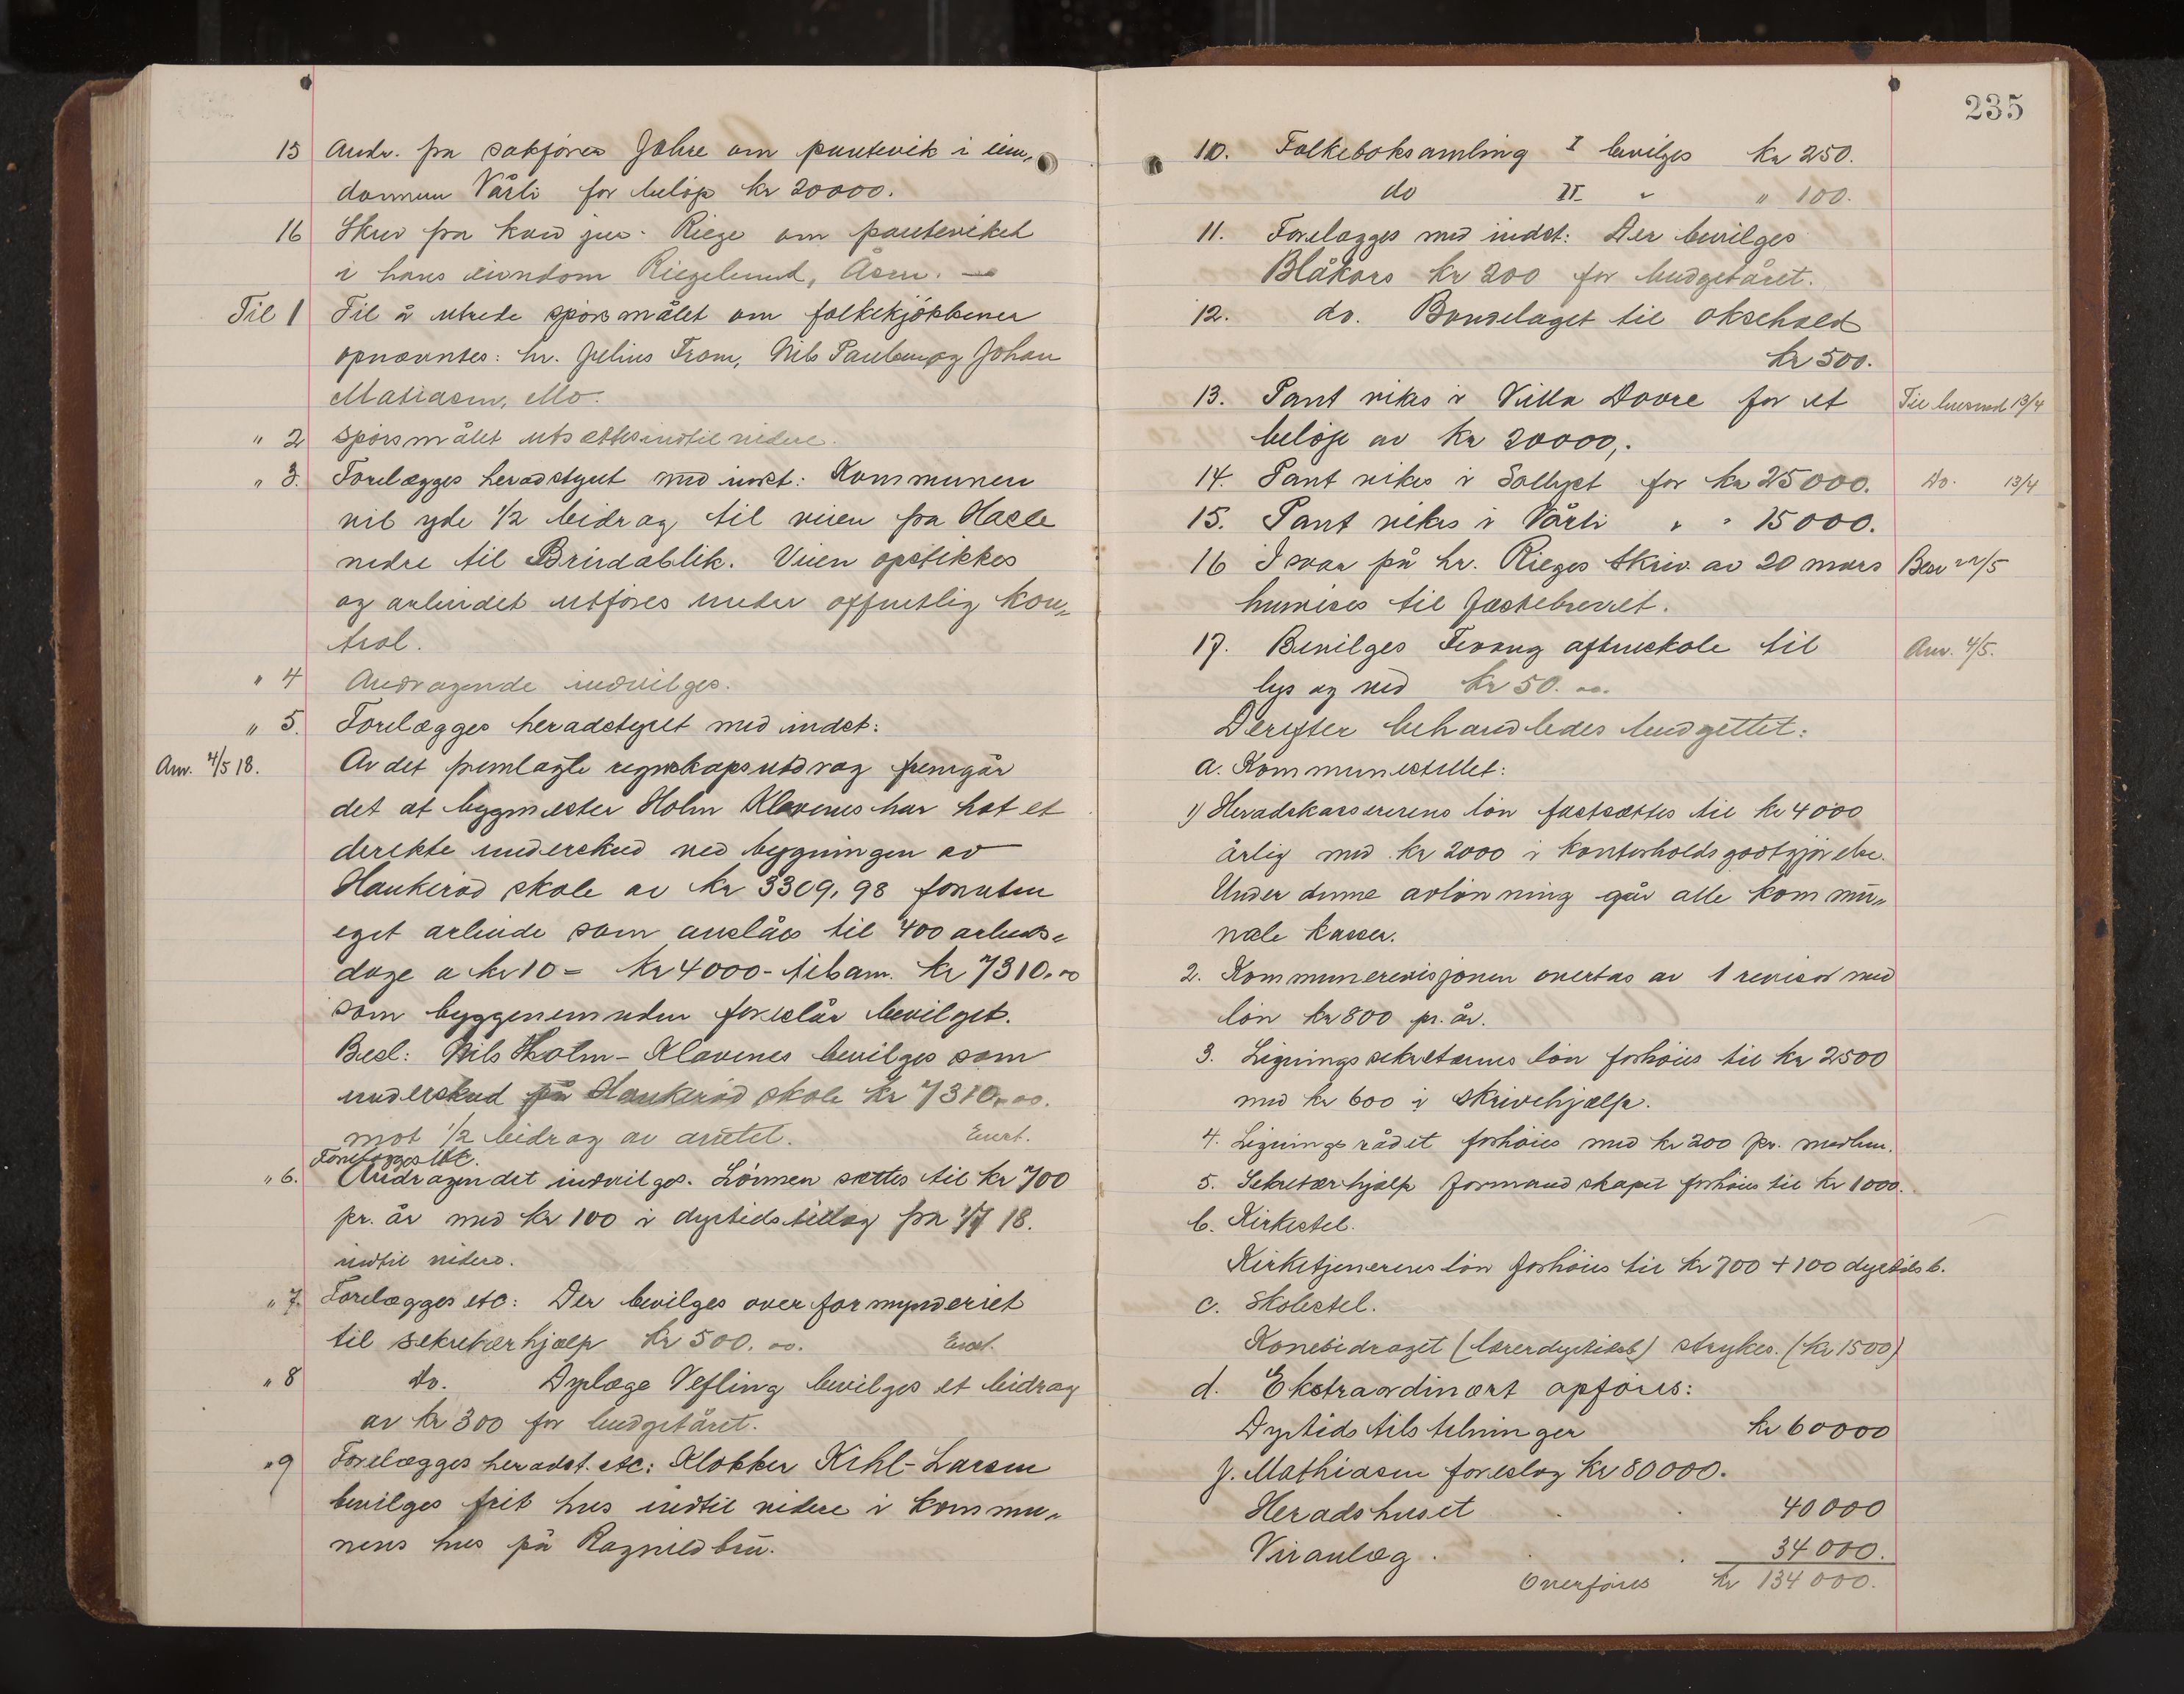 15 Andr. fra sakfører Jahre om pantevik i eien„
dommen Vårli for beløp kr 20000.
16 Skriv fra kand jur. Riege om panteviket
i hans eiendom Riegelund, Åsen. —
Til 1 Til å utrede spørsmålet om folkekjøkkener
opnævntes: hr. Julius From, Nils Paulsen og Johan
Matiasen, Mo.
" 2 Spørsmålet utsættes indtil videre.
" 3. Forelægges heradstyret med indst: Kommunen
vil yde 1/2 bidrag til veien fra Hasle
nedre til Breidablik. Veien opstikkes
og arbeidet utføres under offentlig kon„
trol.
" 4 Andragende indvilges.
" 5. Forelægges heradstyret med indst:
Anv. 4/5 18. Av det fremlagte regnskapsutdrag fremgår
det at bygmester Holm Klavenes har hat et
direkte underskud ved bygningen av
Haukerød skole av kr 3309,98 foruten
eget arbeide som anslåes til 400 arbeids„
dage a kr 10 = kr 4000 - tilsam. kr 7310.00
som byggenemnden foreslår bevilget.
Besl: Nils Holm-Klavenes bevilges som
underskud på Haukerød skole kr 7310.00.
mot 1/2 bidrag av amtet. Enst.
Forelægges etc.
" 6. Andragendet indvilges. Lønnen sættes til kr 700
pr. år med kr 100 i dyrtidstillæg fra 1/7 18.
indtil videre.
" 7. Forelægges etc: Der bevilges overformynderiet
til sekretærhjælp kr 500.00. Enst.
" 8 do. Dyrlæge Vefling bevilges et bidrag
av kr 300 for budgetåret.
" 9 Forelægges heradst. etc: Klokker Kihl-Larsen
bevilges frit hus indtil videre i kommu„
nens hus på Ragnildbru.
235
10. Folkeboksamling I bevilges kr 250.
do II " " 100.
11. Forelægges med indst: Der bevilges
Blåkors kr 200 for budgetåret.
12. do. Bondelaget til oksehold
kr 500.
13. Pant vikes i Villa Dovre for et Til 13/4
beløp av kr 20000,.
14. Pant vikes i Solhøi for kr 25000. do. 13/4
15. Pant vikes i Vårli " " 15000.
16 I svar på hr. Rieges skriv. av 20 mars Besv 22/5
henvises til fæstebrevet.
17. Bevilges Fevang aftenskole til Anv. 4/5.
lys og ved kr 50.00.
Derefter behandledes budgettet:
a. Kommunestellet:
1) Heradskassererens løn fastsættes til kr 4000
årlig med kr 2000 i kontorholdsgodtgjørelse.
Under denne avlønning går alle kommu„
nale kasser.
2. Kommunerevisjonen overtas av 1 revisor med
løn kr 800 pr. år.
3. Ligningssekretærens løn forhøies til kr 2500
med kr 600 i skrivehjælp.
4. Ligningsrådet forhøies med kr 200 pr. medlem.
5. Sekretærhjælp formandskapet forhøies til kr 1000.
b. Kirkestel.
Kirketjenerens løn forhøies til kr 700 + 100 dyrtidsb.
c. Skolestel.
Konebidraget (lærerdyrtidsb) strykes. (kr 1500)
d. Ekstraordinært opføres:
Dyrtidstilstelninger kr 60000
J. Mathiasen foreslog kr 80000.
Heradshuset 40000
Veianlæg 34000.
Overføres kr 134000.